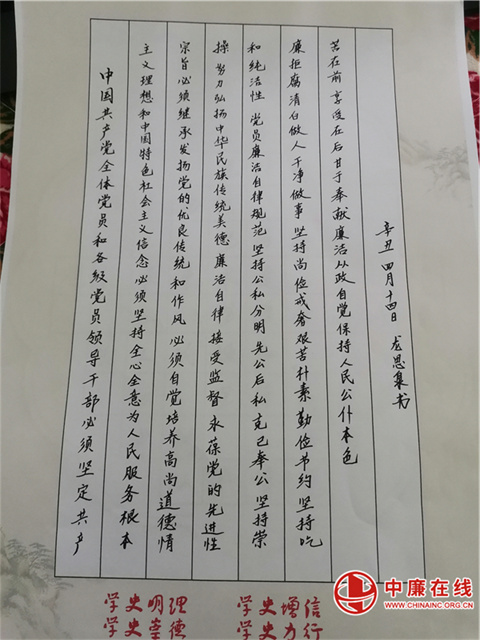 中国共产党全体党员和各级党员领导干部必须坚定共产
主义理想和中国特色社会主义信念必须坚持全心全意为人民服务根本
宗旨必须继承发扬党的优良传统和作风必须自觉培养高尚道德情
操努力弘扬中华民族传统美德廉洁自律接受监督永葆党的先进性
和纯洁性党员廉洁自律规范坚持公私分明先公后私克己奉公坚持崇
廉拒腐清白做人干净做事坚持尚俭戒奢艰苦朴素勤俭节约坚持吃
苦在前享受在后甘于奉献廉洁从政自觉保持人民公仆本色
辛丑四月十四日 龙思集书
学史明理 学史增信
学史崇德 学史力行
中廉在线
WWW.CHINAINC.ORG.CN